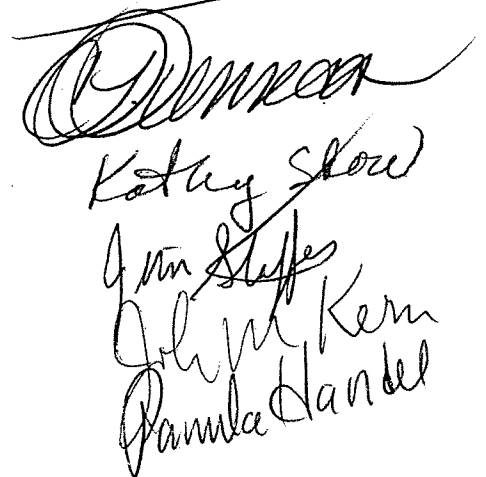 Kathy Skow
Jim Steffes
John M Kern
Pamela Handel